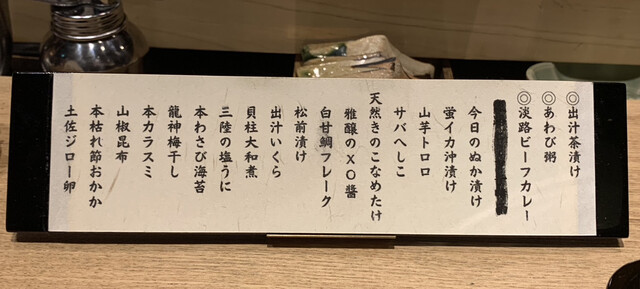 ◎出汁茶漬け
◎あわび粥
◎淡路ビーフカレー
今日のぬか漬け
蛍イカ沖漬け
山芋トロロ
サバへしこ
天然きのこなめたけ
雅醸のXO醬
白甘鯛フレーク
松前漬け
出汁いくら
貝柱大和煮
三陸の塩うに
本わさび海苔
龍神梅干し
本カラスミ
山椒昆布
本枯れ節おかか
土佐ジロー卵